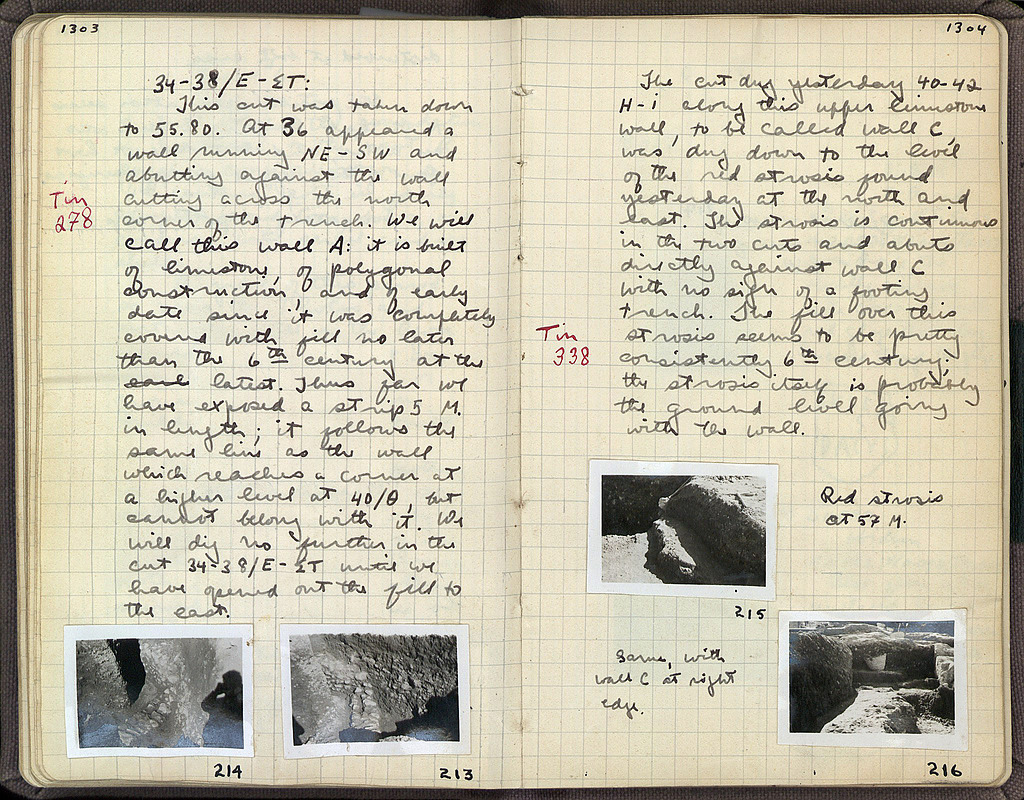 1303
34-38/E-ΣT:
This cut was taken down
to 55.80. At 36 appeared a
wall running NE-SW and
abutting against the wall
cutting across the north
corner of the trench. We will
call this wall A: it is built
of limestone, of polygonal
construction, and of early
date since it was completely
covered with fill no later
than the 6th century at the
latest. Thus far we
have exposed a strip 5 M.
in length; it follows the
same line as the wall
which reaches a corner at
a higher level at 40/Θ, but
cannot belong with it. We
will dig no further in the
cut 34-38/E-ΣT until we
have opened out the fill to
the east.
Tin
278
214
213
1304
The cut dug yesterday 40-42
H-i along this upper limestone
wall, to be called wall C,
was dug down to the level
of the red strosis found
yesterday at the north and
east. The strosis is continuous
in the two cuts and abuts
directly against wall C
with no sign of a footing
trench. The fill over this
strosis seems to be pretty
consistently 6th century;
the strosis itself is probably
the ground level going
with the wall.
Tin
338
Red strosis
at 57 M.
215
Same, with
wall C at right
edge.
216